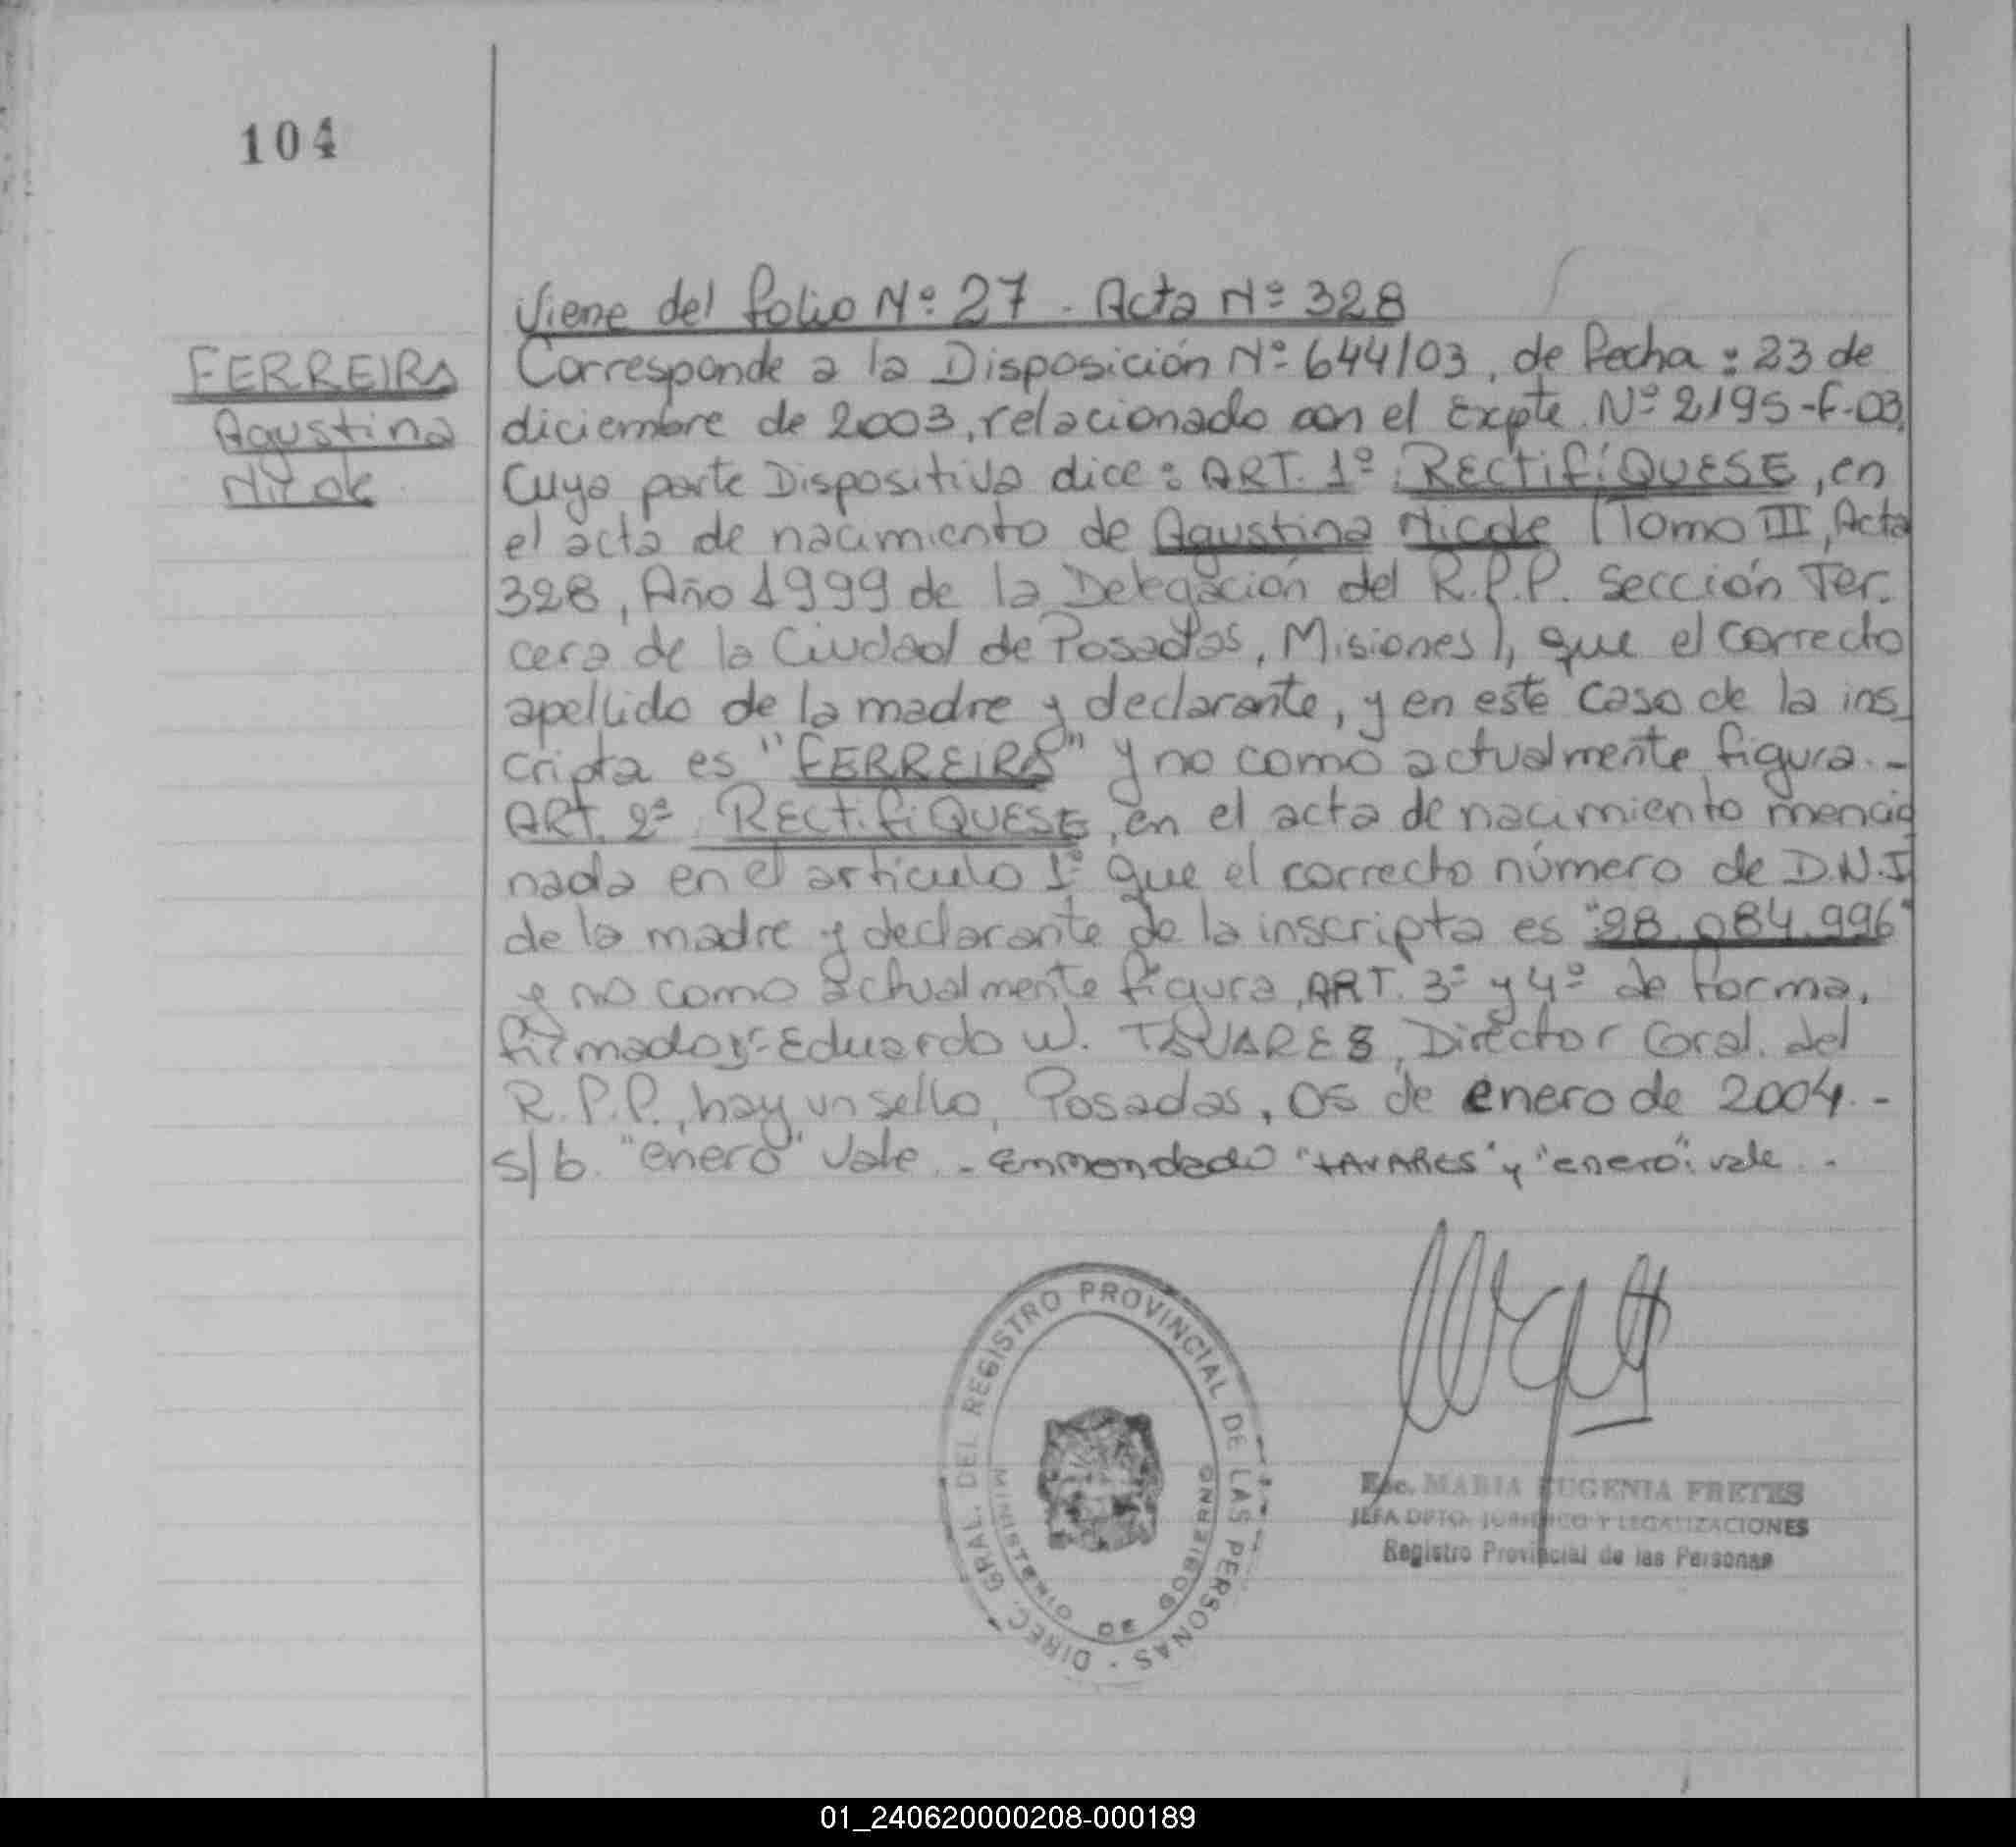 104
Viene del folio Nº 27 - Acta Nº 328
FERREIRA
Agustina
Nicole
Corresponde a la Disposición Nº 644/03, de fecha: 23 de
diciembre de 2003, relacionado con el Expte. Nº 2195-F-03,
Cuya parte Dispositiva dice: ART. 1º: RECTIFÍQUESE, en
el acta de nacimiento de Agustina Nicole (Tomo III, Acta
328, Año 1999 de la Delegación del R.P.P. Sección Ter-
cera de la Ciudad de Posadas, Misiones), que el correcto
apellido de la madre y declarante, y en este caso de la ins_
cripta es "FERREIRA" y no como actualmente figura.-
ART. 2º: RECTIFIQUESE, en el acta de nacimiento mencio
nada en el artículo 1º que el correcto número de D.N.I
de la madre y declarante de la inscripta es "28.084.996"
y no como actualmente figura, ART. 3º y 4º de forma,
firmado: Eduardo W. TAVARES, Director Gral. del
R.P.P., hay un sello, Posadas, 05 de enero de 2004.-
s/b. "enero" Vale.- Enmendado "TAVARES" y "enero": vale.-
DIREC. GRAL. DEL REGISTRO PROVINCIAL DE LAS PERSONAS -
MINISTERIO DE GOBIERNO
Esc. MARIA EUGENIA FRETES
JEFA DPTO. JURIDICO Y LEGALIZACIONES
Registro Provincial de las Personas
01_240620000208-000189